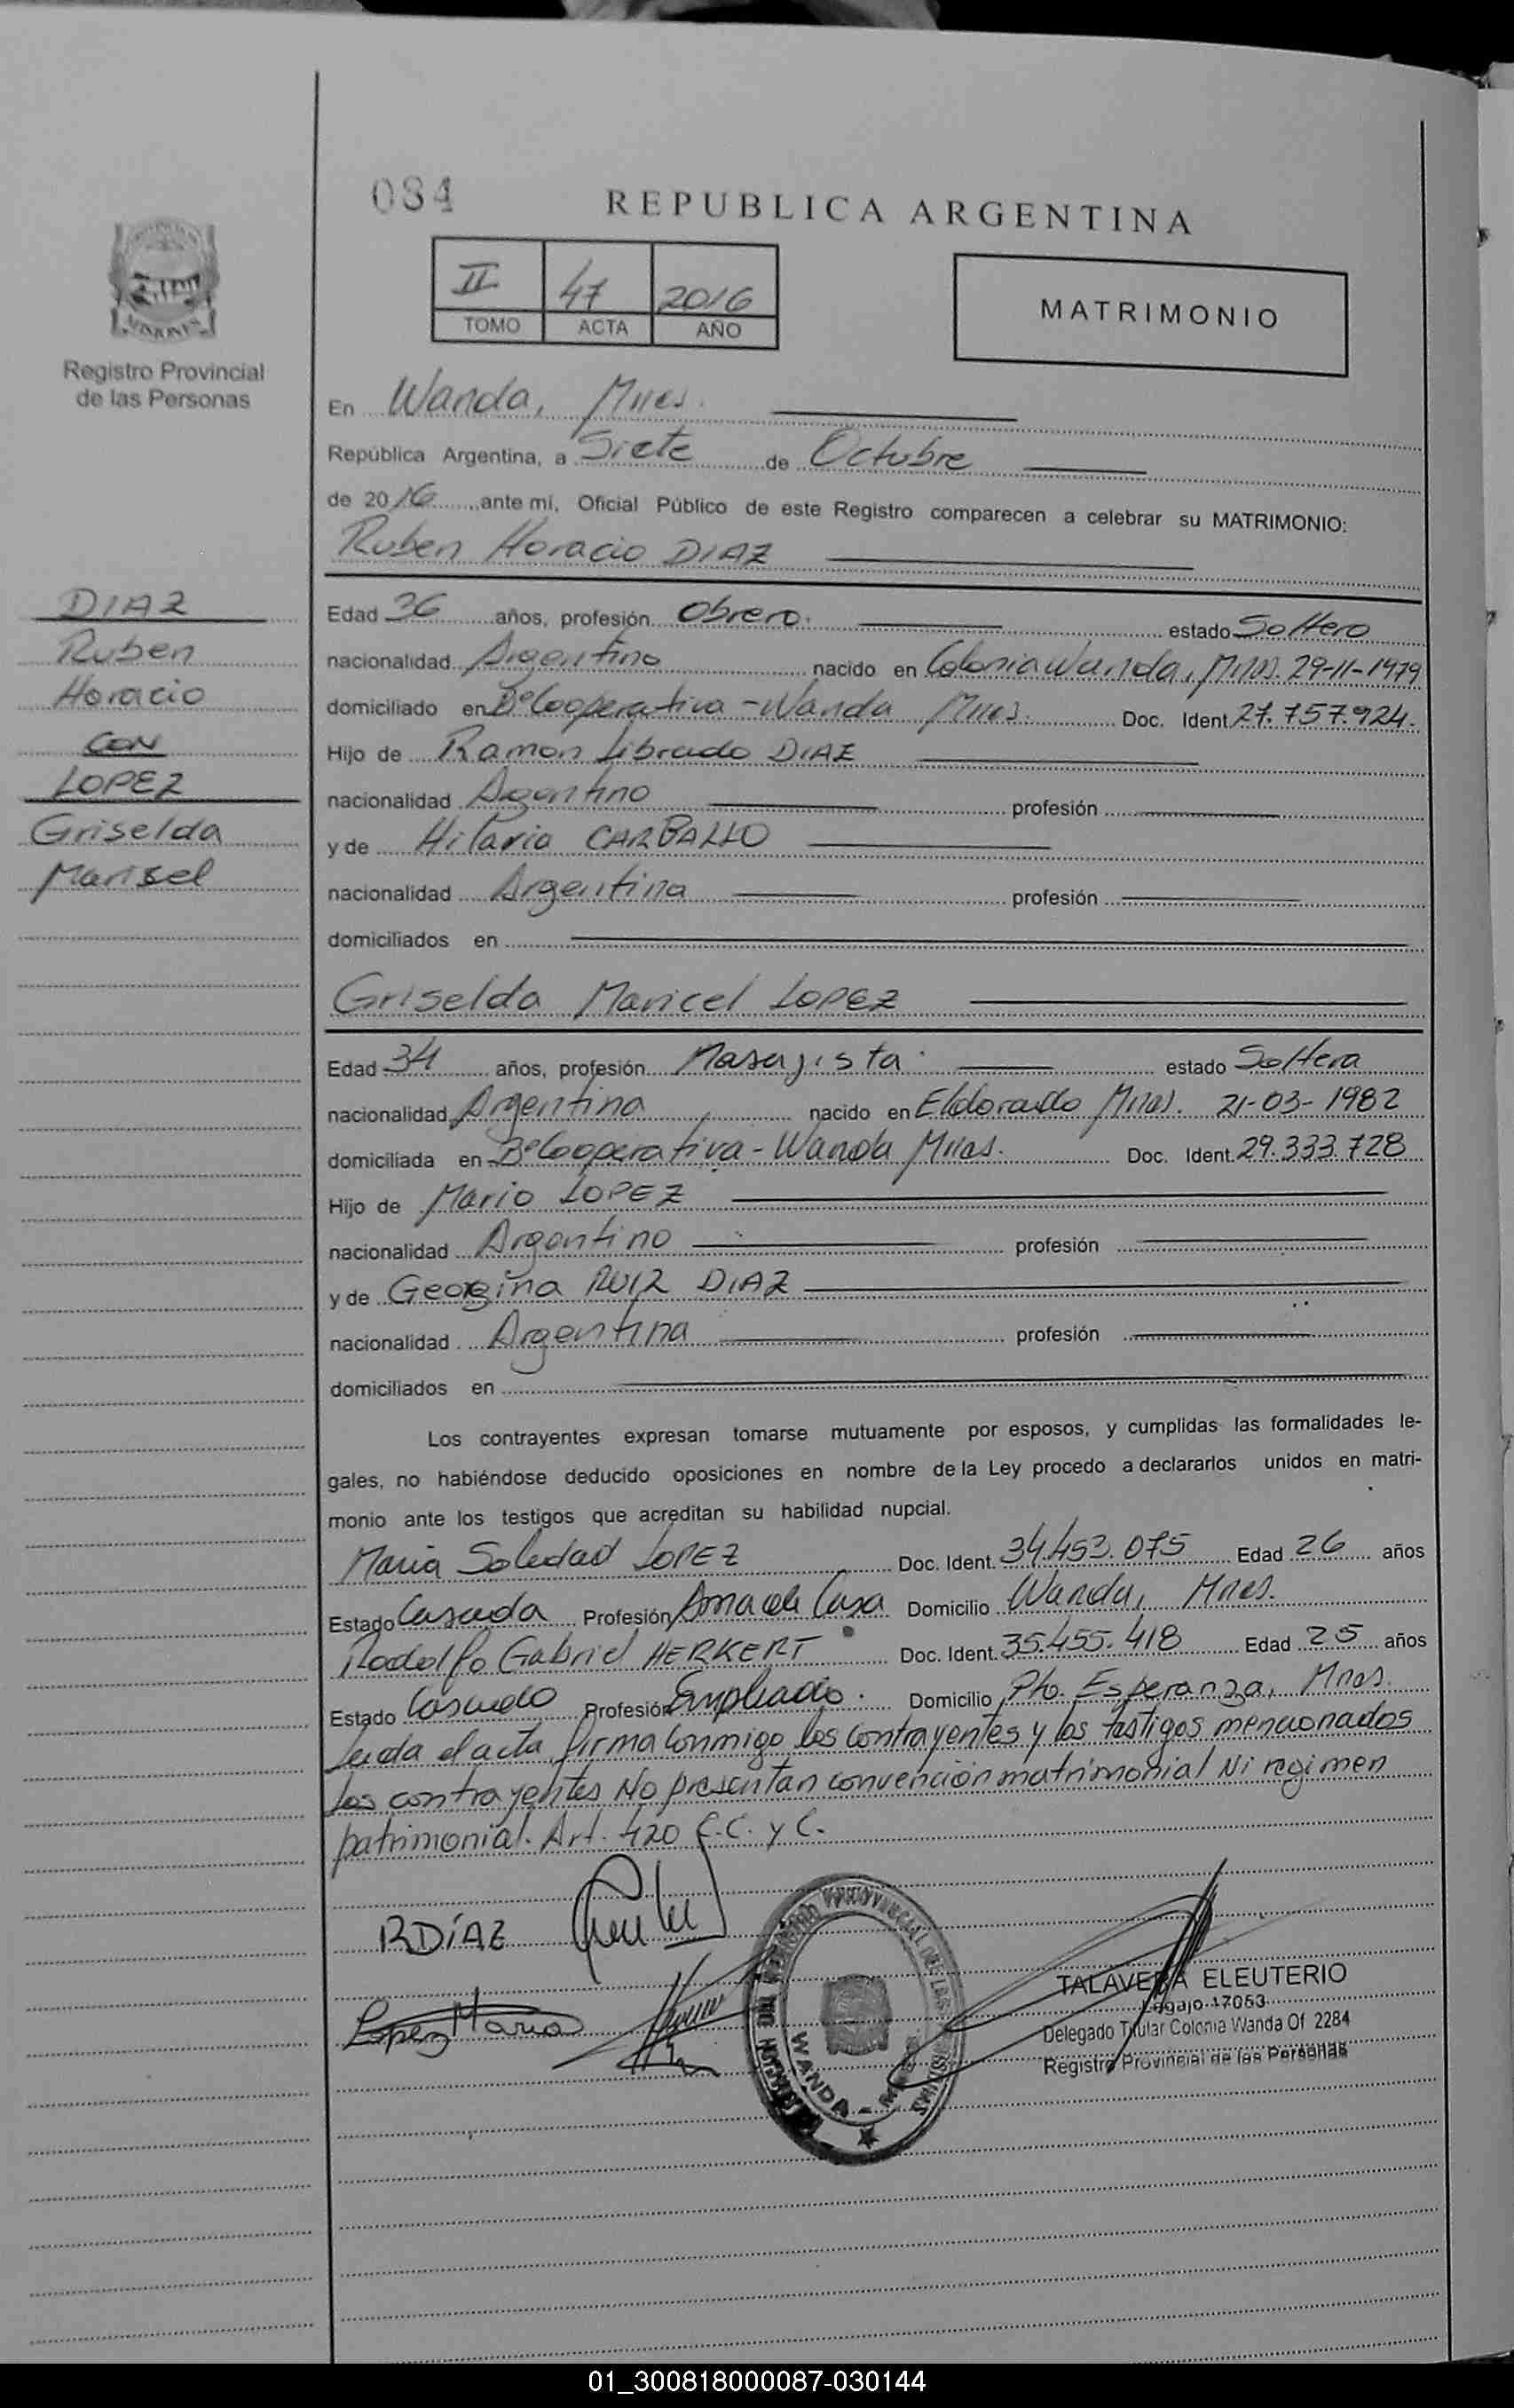 084
REPUBLICA ARGENTINA
II 47 2016
TOMO ACTA AÑO
MATRIMONIO
MISIONES
Registro Provincial
de las Personas
DIAZ
Ruben
Horacio
CON
LOPEZ
Griselda
Marisel
En Wanda, Mnes.
República Argentina, a Siete de Octubre
de 2016 ante mí, Oficial Público de este Registro comparecen a celebrar su MATRIMONIO:
Ruben Horacio DIAZ
Edad 36 años, profesión Obrero. estado Soltero
nacionalidad Argentino nacido en Colonia Wanda, Mnes. 29-11-1979
domiciliado en Bº Cooperativa - Wanda Mnes. Doc. Ident. 27.757.924.
Hijo de Ramon Librado DIAZ
nacionalidad Argentino profesión
y de Hilaria CARBALLO
nacionalidad Argentina profesión
domiciliados en
Griselda Maricel LOPEZ
Edad 34 años, profesión Masajista. estado Soltera
nacionalidad Argentina nacido en Eldorado Mnes. 21-03-1982
domiciliada en Bº Cooperativa - Wanda Mnes. Doc. Ident. 29.333.728
Hijo de Mario LOPEZ
nacionalidad Argentino profesión
y de Georgina RUIZ DIAZ
nacionalidad Argentina profesión
domiciliados en
Los contrayentes expresan tomarse mutuamente por esposos, y cumplidas las formalidades le-
gales, no habiéndose deducido oposiciones en nombre de la Ley procedo a declararlos unidos en matri-
monio ante los testigos que acreditan su habilidad nupcial.
Maria Soledad LOPEZ Doc. Ident. 34.453.075 Edad 26 años
Estado Casada Profesión Ama de Casa Domicilio Wanda, Mnes.
Rodolfo Gabriel HERKERT Doc. Ident. 35.455.418 Edad 25 años
Estado Casado Profesión Empleado. Domicilio Pto. Esperanza, Mnes.
Leida el acta firma conmigo los contrayentes y los testigos mencionados
los contrayentes No presentan convención matrimonial Ni regimen
patrimonial. Art. 420 C.C. y C.
R DíAZ
Lopez Maria
WANDA
TALAVERA ELEUTERIO
Legajo 17053
Delegado Titular Colonia Wanda Of 2284
Registro Provincial de las Personas
01_300818000087-030144